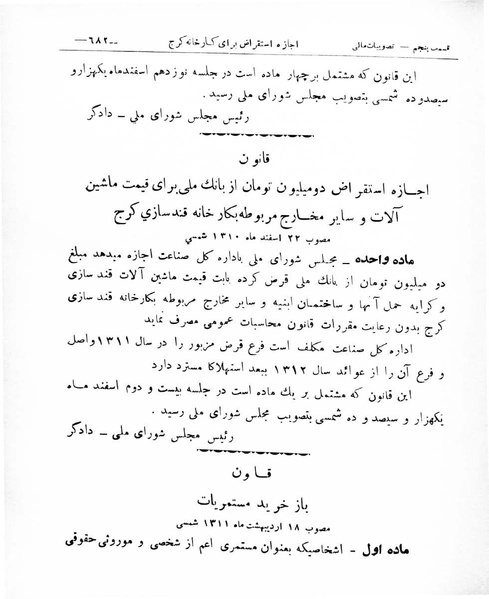 قسمت پنجم — تصویبات مالی اجازه استقراض برای کارخانه کرج —۶۸۲—
این قانون که مشتمل برچهار ماده است در جلسه نوزدهم اسفندماه یکهزار و
سیصدوده شمسی بتصویب مجلس شورای ملی رسید .
رئیس مجلس شورای ملی ـ دادگر
قانون
اجازه استقراض دومیلیون تومان از بانك ملی برای قیمت ماشین
آلات و سایر مخارج مربوطه بکارخانه قندسازی کرج
مصوب ۲۲ اسفند ماه ۱۳۱۰ شمسی
ماده واحده ـ مجلس شورای ملی باداره کل صناعت اجازه میدهد مبلغ
دو میلیون تومان از بانك ملی قرض کرده بابت قیمت ماشین آلات قند سازی
و کرایه حمل آنها و ساختمان ابنیه و سایر مخارج مربوطه بکارخانه قند سازی
کرج بدون رعایت مقررات قانون محاسبات عمومی مصرف نماید
اداره کل صناعت مکلف است فرع قرض مزبور را در سال ۱۳۱۱ واصل
و فرع آن را از عوائد سال ۱۳۱۲ ببعد استهلاکا مسترد دارد
این قانون که مشتمل بر یك ماده است در جلسه بیست و دوم اسفند مـاه
یکهزار و سیصد و ده شمسی بتصویب مجلس شورای ملی رسید .
رئیس مجلس شورای ملی ـ دادگر
قـانون
باز خرید مستمریات
مصوب ۱۸ اردیبهشت ماه ۱۳۱۱ شمسی
ماده اول ـ اشخاصیکه بعنوان مستمری اعم از شخصی و موروثی حقوقی